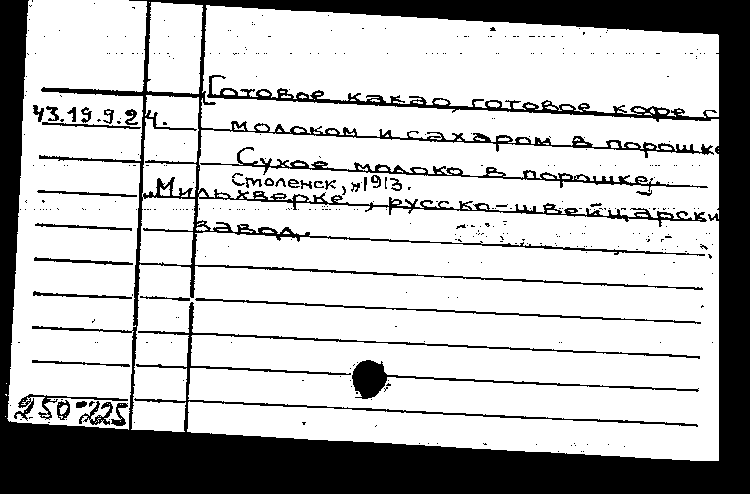 [Готовое какао, готовое кофе с
43.19.9.24.
молоком и сахаром в порошке
Сухое молоко в порошке].
Смоленск, 1913.
„Мильхверке", русско-швейцарски
завод.
250-225